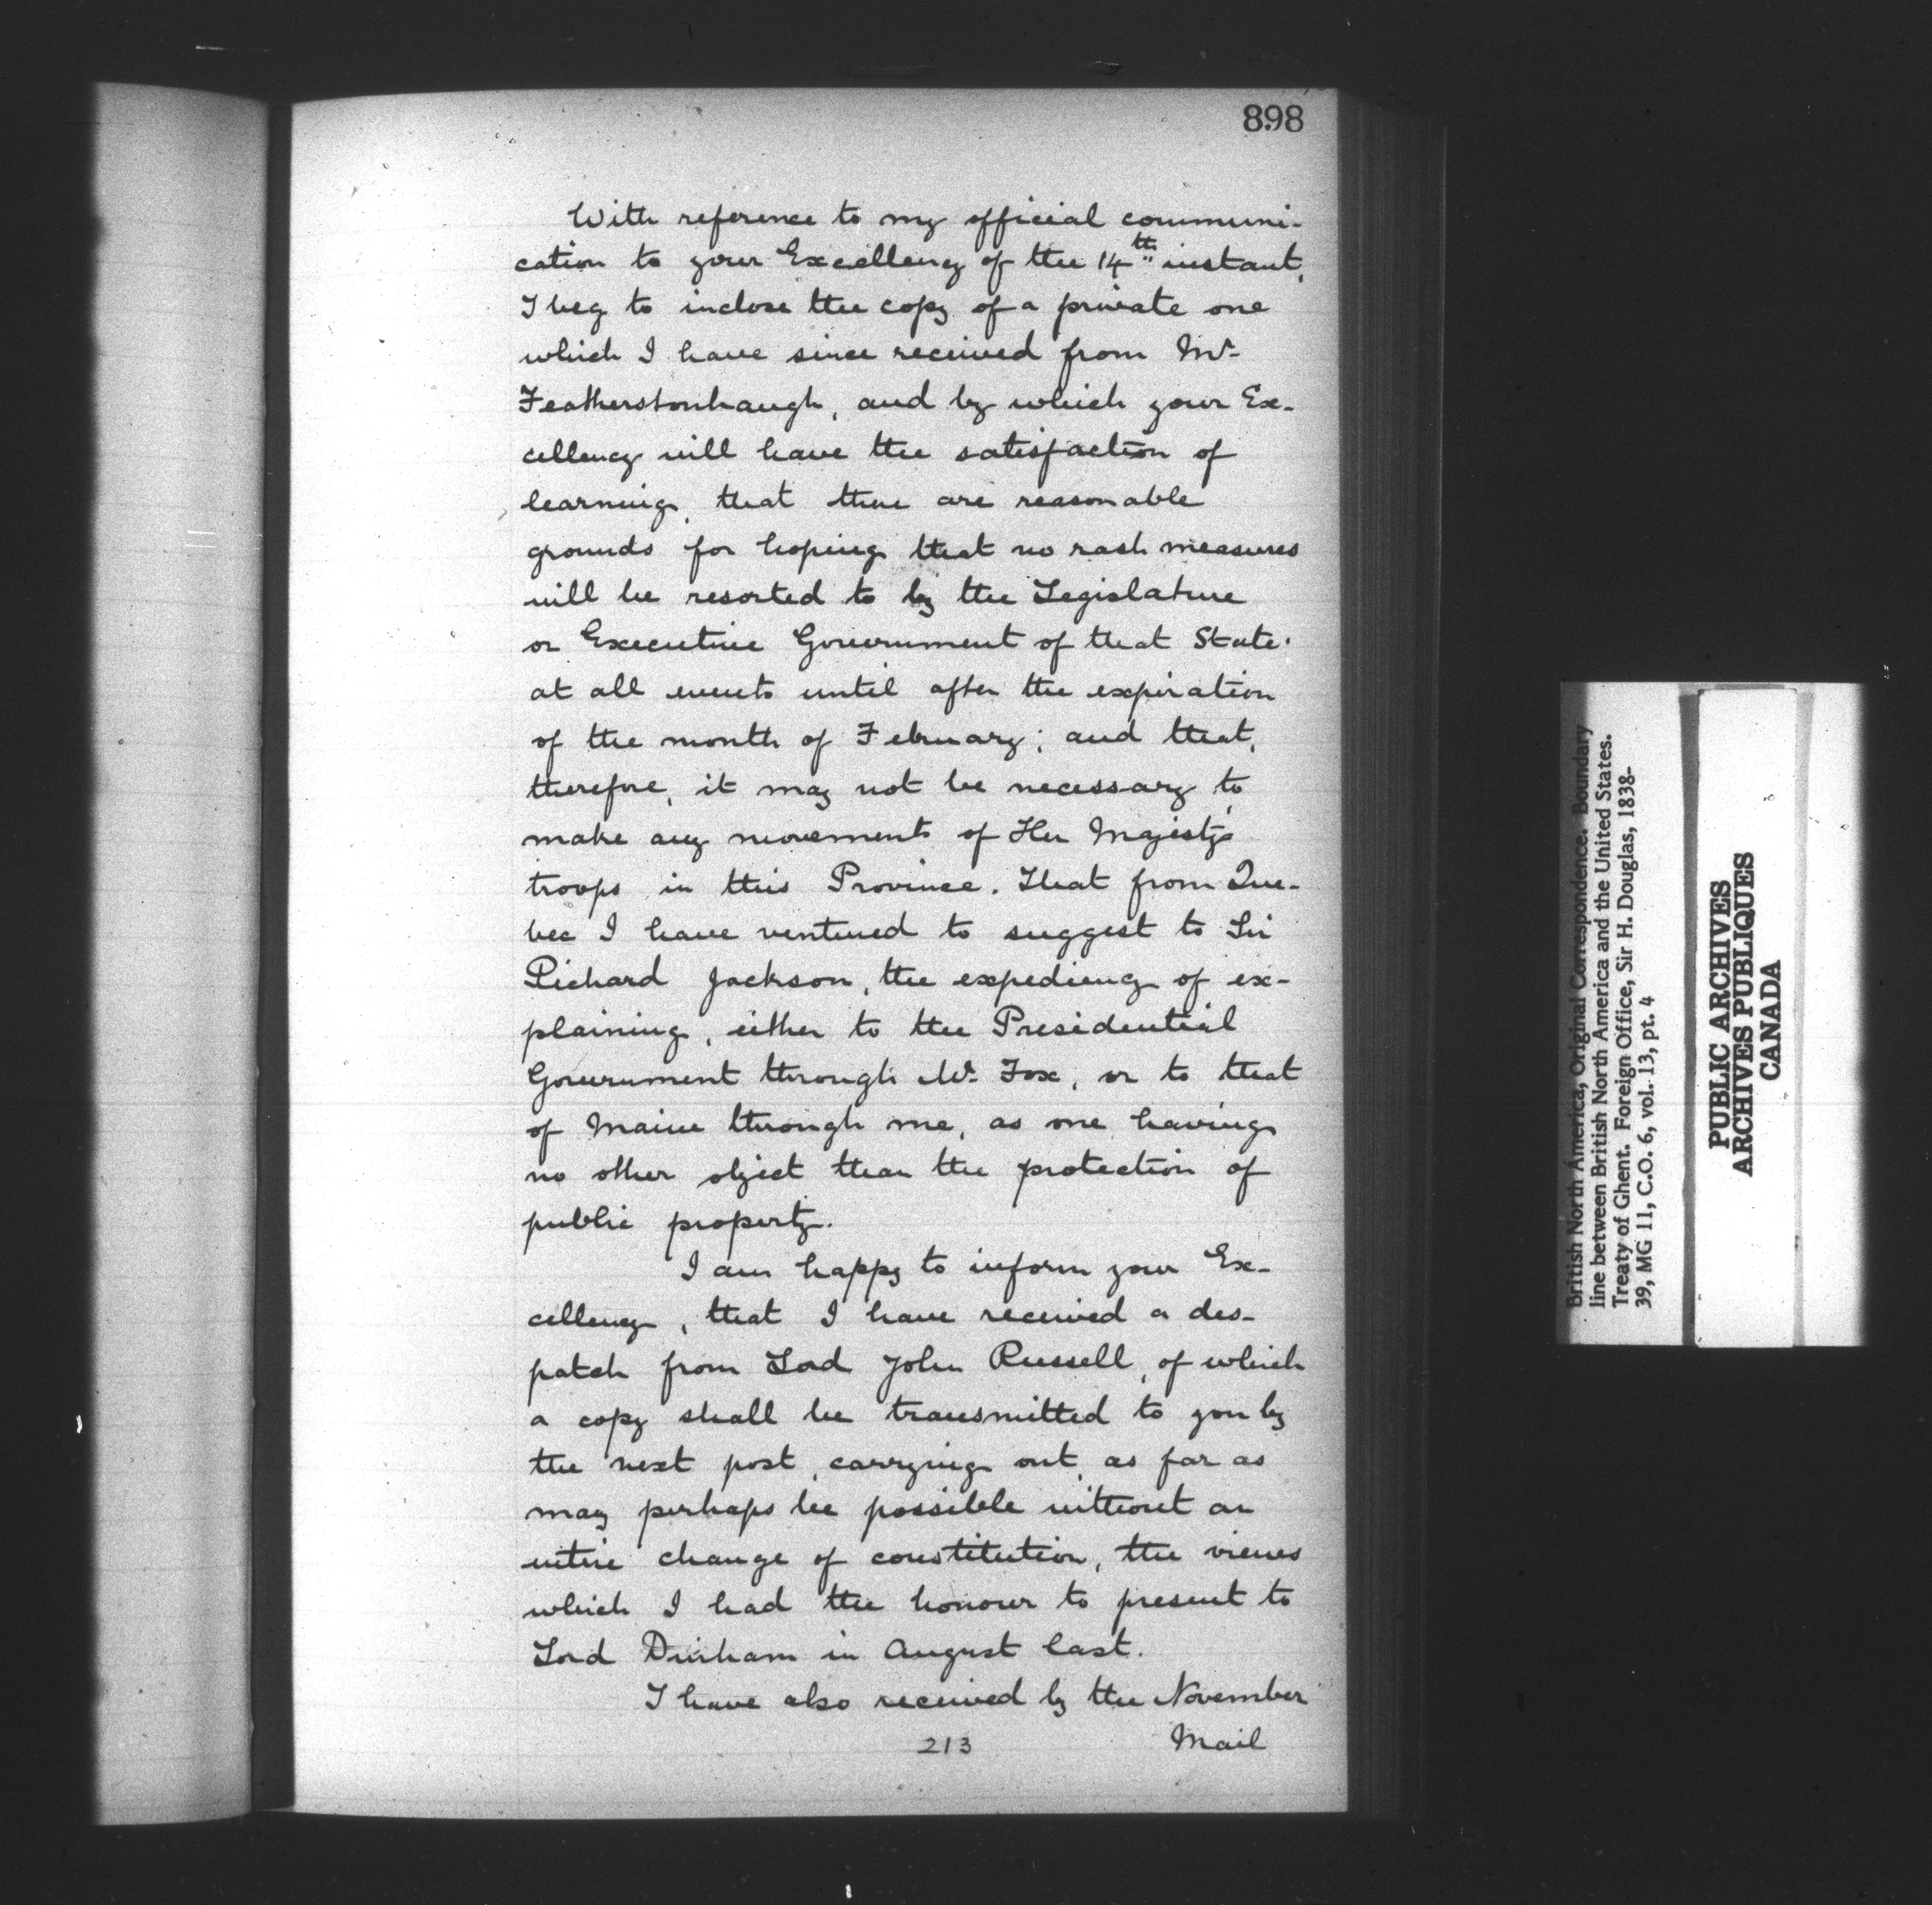 898
With reference to my official communi-
cation to your Excellency of the 14th instant,
I beg to inclose the copy of a private one
which I have since received from Mr.
Featherstonhaugh, and by which your Ex-
cellency will have the satisfaction of
learning, that there are reasonable
grounds for hoping that no rash measures
will be resorted to by the Legislature
or Executive Government of that State.
at all events until after the expiration
of the month of February; and that,
therefore, it may not be necessary to
make any movements of Her Majesty's
troops in this Province. That from Que-
bec I have ventured to suggest to Sir
Richard Jackson, the expediency of ex-
plaining, either to the Presidential
Government through Mr. Fox, or to that
of Maine through me, as one having
no other object than the protection of
public property.
I am happy to inform your Ex-
cellency, that I have received a des-
patch from Lord John Russell, of which
a copy shall be transmitted to you by
the next post, carrying out, as far as
may perhaps be possible without an
entire change of constitution, the views
which I had the honour to present to
Lord Durham in August last.
I have also received by the November
213 Mail
British North America, Original Correspondence. Boundary
line between British North America and the United States.
Treaty of Ghent. Foreign Office, Sir H. Douglas, 1838-
39, MG 11, C.O. 6, vol. 13, pt. 4
PUBLIC ARCHIVES
ARCHIVES PUBLIQUES
CANADA